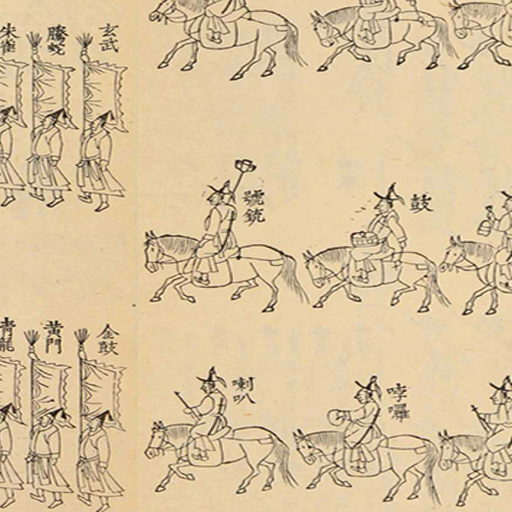 玄武
騰蛇
朱雀
鼓
號銃
哱囉
喇叭
金鼓
黄門
青龍